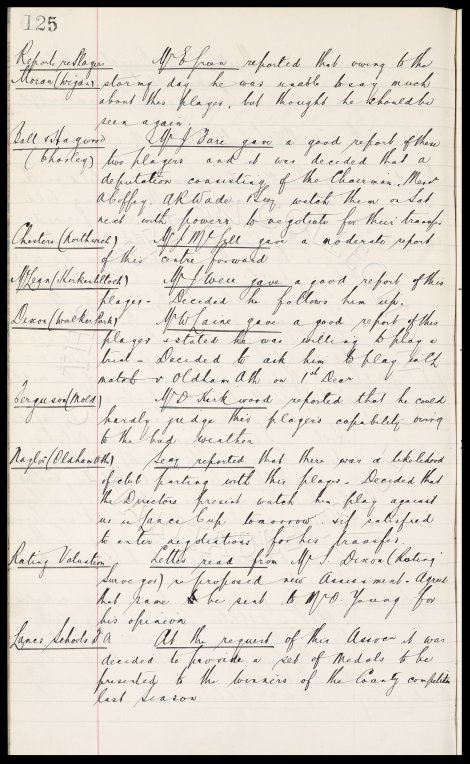 125
Reports re Players Mr E Green reported that owing to the
Moran (Wigan) stormy day he was unable to say much
about this player, but thought he should be
seen again.
Ball & Haywood Mr J Fare gave a good report of these
(Chorley) two players and it was decided that a
deputation consisting of the Chairman, Messrs
A Coffey, A R Wade & Secy watch them on Sat
next with powers to negotiate for their transfer
Chesters (Northwich) Mr J McGill gave a moderate report
of this centre forward
McLean (Kirkintilloch) Mr J Weir gave a good report of this
player - Decided he follows him up.
Dixon (Walker Park) Mr W Laine gave a good report of this
player & stated he was willing to play a
trial - Decided to ask him to play in
match v Oldham Ath on 1st Decr
Ferguson (Mold) Mr D Kirkwood reported that he could
hardly judge this players capability owing
to the bad weather
Naylor (Oldham Ath) Secy reported that there was a likelihood
of club parting with this player - Decided that
the Directors present watch him play against
us in Lancs Cup tomorrow & if satisfied
to enter negotiations for his transfer.
Rating Valuation Letter read from Mr J. Dixon (Rating
Surveyor) re proposed new Assessment - Agreed
that same be sent to Mr O. Young for
his opinion
Lancs Schools F A At the request of this Assocn it was
decided to provide a set of Medals to be
presented to the winners of the County competition
last season